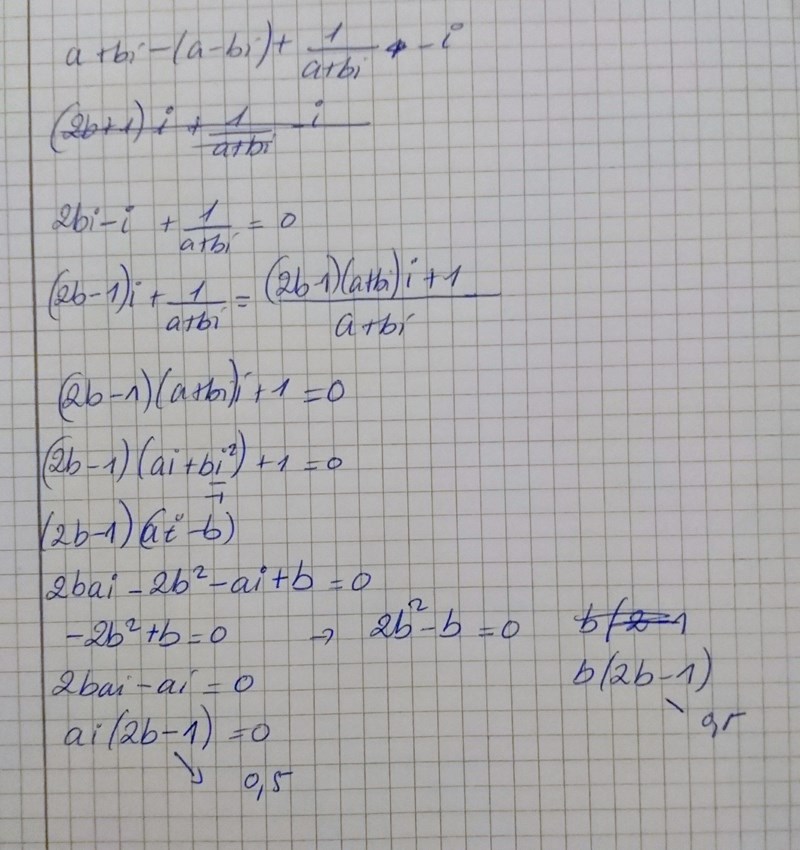 a + bi − (a − bi) + 1/(a+bi) − i
(2b+1) i + 1/(a+bi) − i
2bi − i + 1/(a+bi) = 0
(2b−1)i + 1/(a+bi) = ((2b−1)(a+bi) i + 1)/(a+bi)
(2b−1)(a+bi)i + 1 = 0
(2b−1)(ai + bi²) + 1 = 0
−1
(2b−1)(ai − b)
2bai − 2b² − ai + b = 0
−2b² + b = 0 → 2b² − b = 0 b(2−1
2bai − ai = 0 b(2b−1)
ai(2b−1) = 0 0,5
0,5